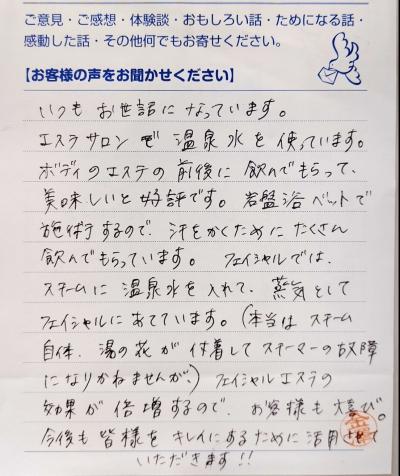 ご意見・ご感想・体験談・おもしろい話・ためになる話・
感動した話・その他何でもお寄せください。
【お客様の声をお聞かせください】
いつも お世話に なっています。
エステサロン で 温泉水を 使っています。
ボディのエステの 前後に 飲んでもらって、
美味しいと 好評です。 岩盤浴 ベットで
施術するので、汗をかくために たくさん
飲んでもらっています。 フェイシャルでは、
スチームに 温泉水を入れて、 蒸気として
フェイシャルにあてています。(本当は スチーム
自体、湯の花が 付着して スチーマーの故障
になりかねませんが、) フェイシャルエステの
効果が 倍増するので、 お客様も 大喜び。
今後も 皆様を キレイにするために 活用させて
いただきます!!